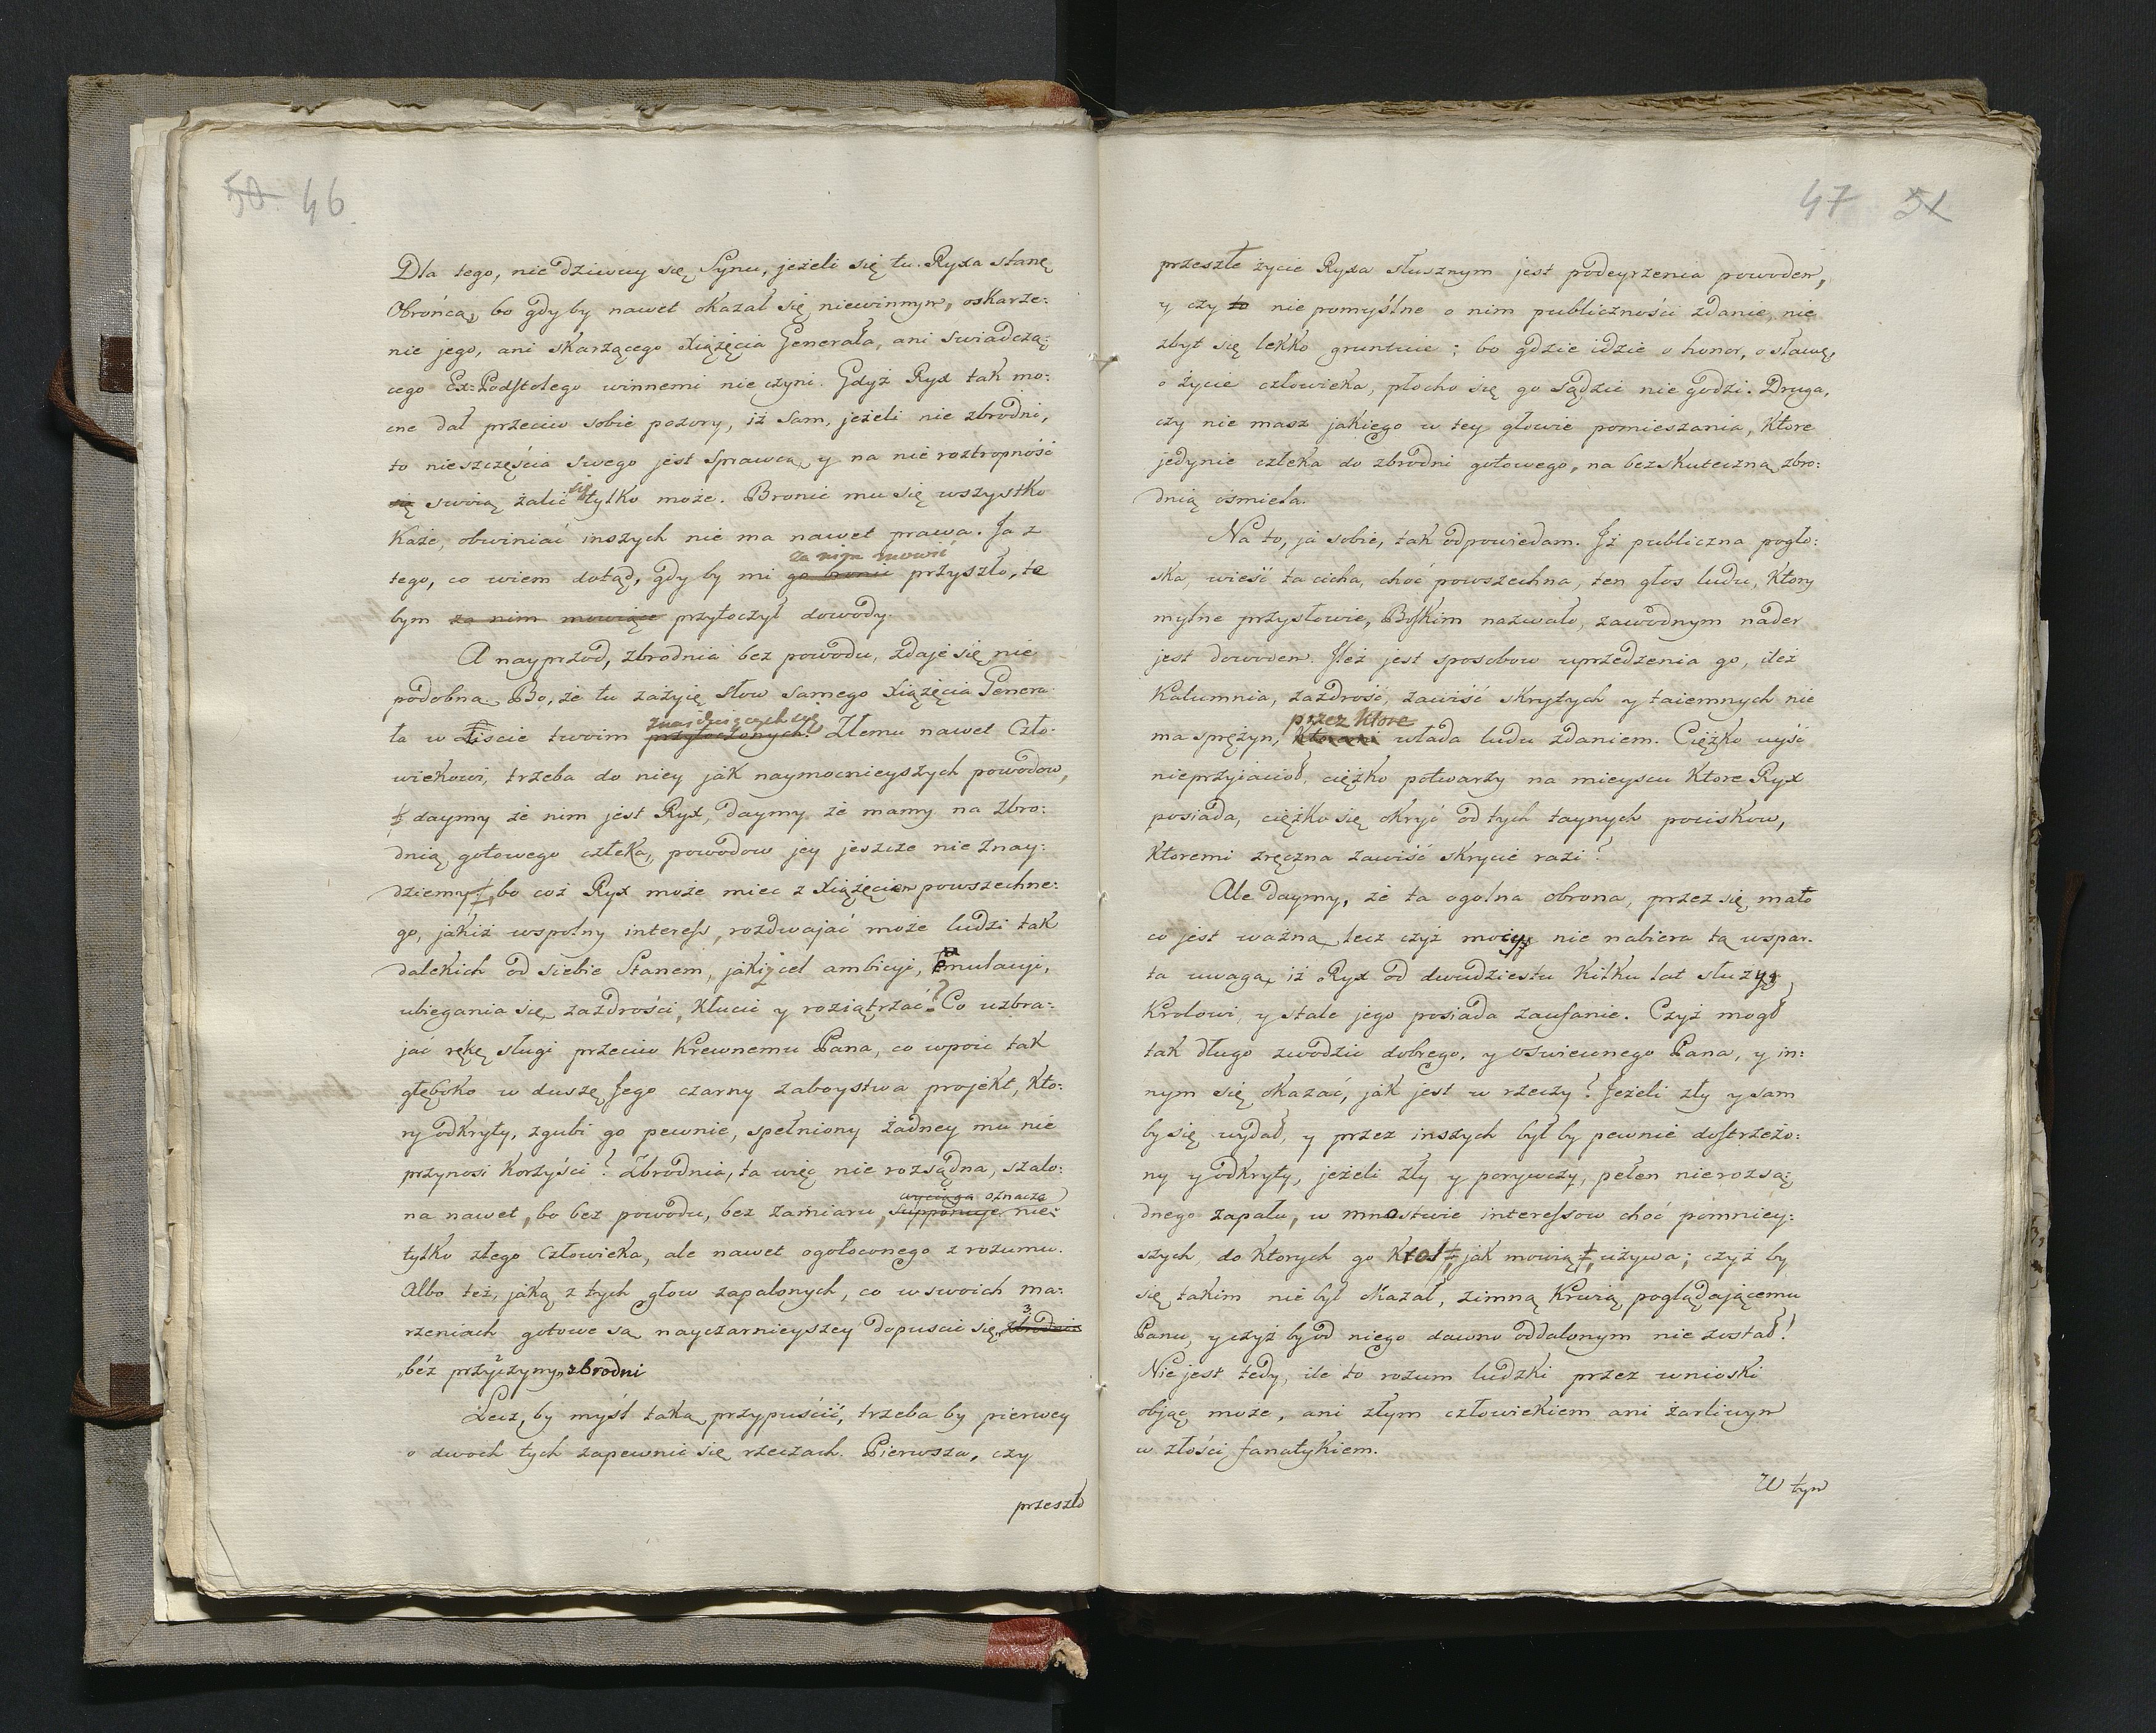 50 46
Dla tego, nie dziwuy się Synu, jeżeli się tu Ryxa stanę
Obrońcą, bo gdyby nawet okazał się niewinnym, oskarze:
nie jego, ani skarzącego Xiążęcia Generała, ani swiadczą:
cego Ex=Podstolego winnemi nie czyni. Gdyż Ryx tak mo:
cne dał przeciw sobie pozory, iż sam, jeżeli nie zbrodni,
to nieszczęścia swego jest sprawcą, y na nie roztropność
się
się swoią żalić tylko może. Bronić mu się wszystko
Każe, obwiniać inszych nie ma nawet prawa. Ja z
za nim mowić
tego, co wiem dotąd, gdy by mi go bronić przyszło, te
bym za nim mowiąc przytoczył dowody.
A nayprzod, zbrodnia bez powodu, zdaje się nie
podobna. Bo, że tu zażyię słow samego Xiążęcia Genera
znayduiących się
ła w Liscie twoim przytoczonych. Złemu nawet Czło:
wiekowi, trzeba do niey jak naymocnieyszych powodow,
‡ daymy że nim jest Ryx, daymy że mamy na zbro:
dnią gotowego człeka, powodow jey jeszcze nie znay:
dziemy ‡, bo coż Ryx może miec z Xiążęciem powszechne:
go, jakiż wspolny interess, rozdwajać może ludzi tak
dalekich od siebie Stanem, jakiż cel ambicyi, emulacyi,
ubiegania się, zazdrości, kłucić y roziątrzać? Co uzbra:
jać rękę sługi przeciw Krewnemu Pana, co wpoić tak
głęboko w duszę Jego czarny zaboystwa projekt, Kto:
ry odkryty, zgubi go pewnie, spełniony żadney mu nie
przynosi Korzyści? Zbrodnia, ta więc nie rozsądna, szalo:
wyciąga oznacza
na nawet, bo bez powodu, bez zamiaru, supponuje nie:
tylko złego Człowieka, ale nawet ogołoconego z rozumu.
Albo też, jaką z tych głow zapalonych, co w swoich ma:
3.
rzeniach gotowe są nayczarnieyszey dopuscić się zbrodnie
2
„bez przyczyny„ zbrodni
Lecz, by myśl taką przypuścić, trzeba by pierwey
o dwoch tych zapewnić się rzeczach. Pierwsza, czy
przeszłe
47 51
przeszłe życie Ryxa słusznym jest podeyrzenia powodem,
y czy to nie pomyślne o nim publiczności zdanie, nie
zbyt się lekko gruntuie; bo gdzie idzie o honor, o sławę,
o życie człowieka, płocho się go sądzić nie godzi. Druga,
czy nie masz jakiego w tey głowie pomieszania, Ktore
jedynie człeka do zbrodni gotowego, na bezskuteczną zbro:
dnią ośmiela.
Na to, ja sobie, tak odpowiedam. Iż publiczna pogło:
ska, wieść ta cicha, choć powszechna, ten głos ludu, Ktory
mylne przysłowie, Boskim nazwało, zawodnym nader
jest dowodem. Ileż jest sposobow uprzedzenia go, ileż
Kalumnia, zazdrość, zawiść skrytych y taiemnych nie
przez Ktore
ma sprężyn, Ktoremi włada ludu zdaniem. Ciężko uyść
nieprzyiacioł, ciężko potwarzy na mieyscu Ktore Ryx
posiada, ciężko się okryć od tych taynych pocisków,
Ktoremi zręczna zawiść skrycie razi?
Ale daymy, że ta ogolna obrona, przez się mało
co jest ważna, lecz czyż mocy nie nabiera tą wspar:
ta uwagą, iż Ryx od dwudziestu Kilku lat służy
Krolowi, y stale jego posiada zaufanie. Czyż mogł
tak długo zwodzić dobrego, y oświeconego Pana, y in:
nym się okazać, jak jest w rzeczy? Jeżeli zły y sam
by się wydał, y przez inszych był by pewnie dostrzeżo:
ny y odkryty, jeżeli zły y porywczy, pełen nierozsą:
dnego zapału, w mnostwie interessow choć pomniey:
szych, do Ktorych go Krol ‡, jak mowią ‡, używa; czyż by
się takim nie był okazał, zimną Krwią, poglądającemu
Panu, y czyż by od niego dawno oddalonym nie został!
Nie jest tedy, ile to rozum ludzki przez wnioski
objąć może, ani złym człowiekiem ani żarliwym
w złości fanatykiem.
W tym